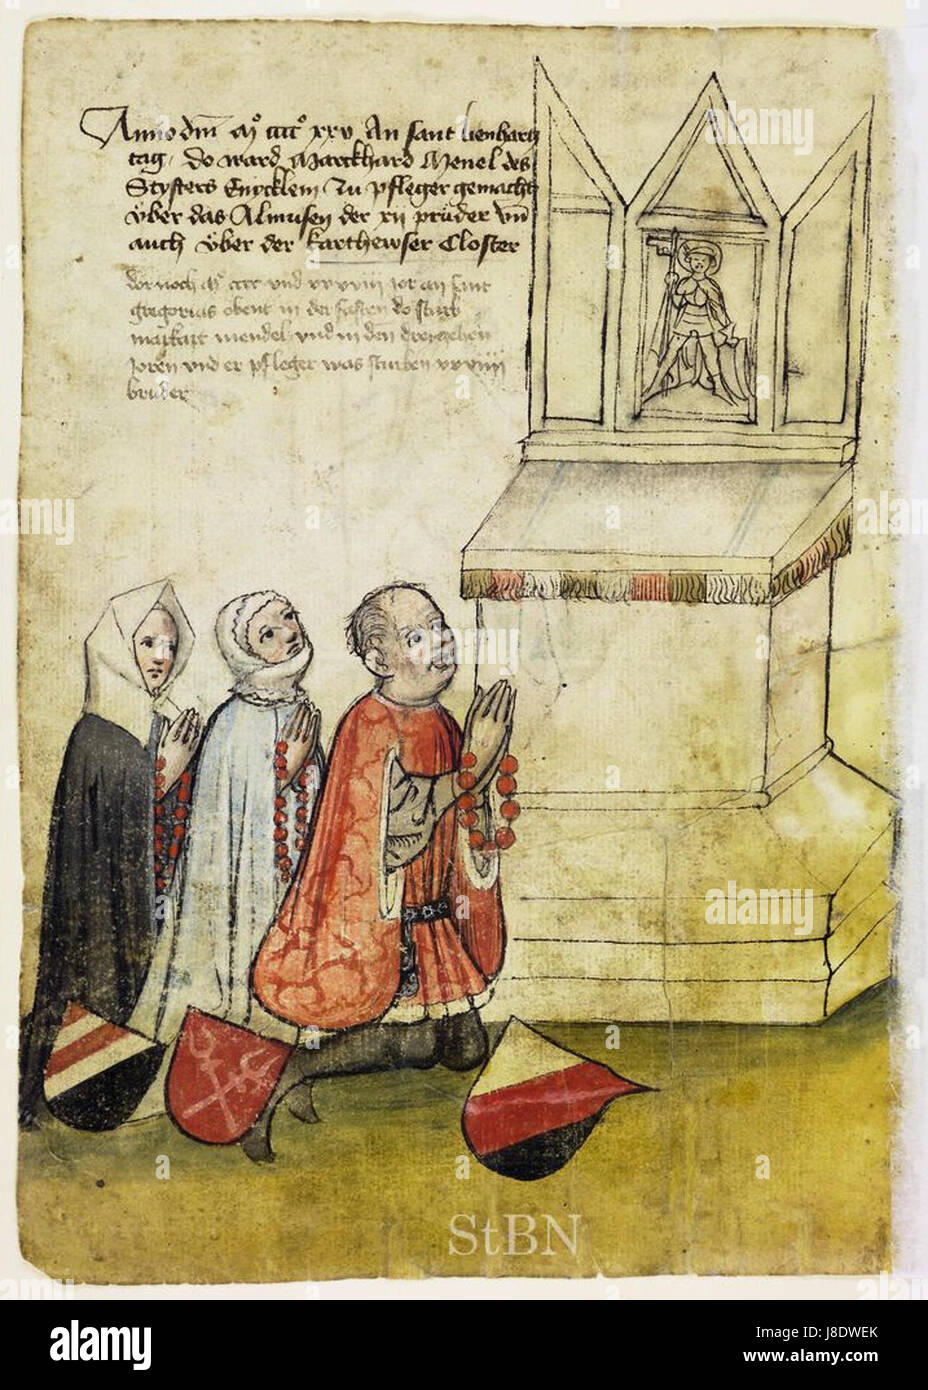 Anno dm̄ mº ccccº xxv An sant lienhartz
tag, do ward Marckhard Menel des
Styfters Enycklein zu pfleger gemacht
Vber das Almusen der xij prüder vn̄
auch vber der karthewser Closter
dornoch mº cccc und xxxviii jor an sant
gregorius obent in der fasten do starb
markart mendel und in den dreyzehen
joren und er pfleger was sturben xxviiii
bruder
StBN
alamy
Image ID: J8DWEK
www.alamy.com